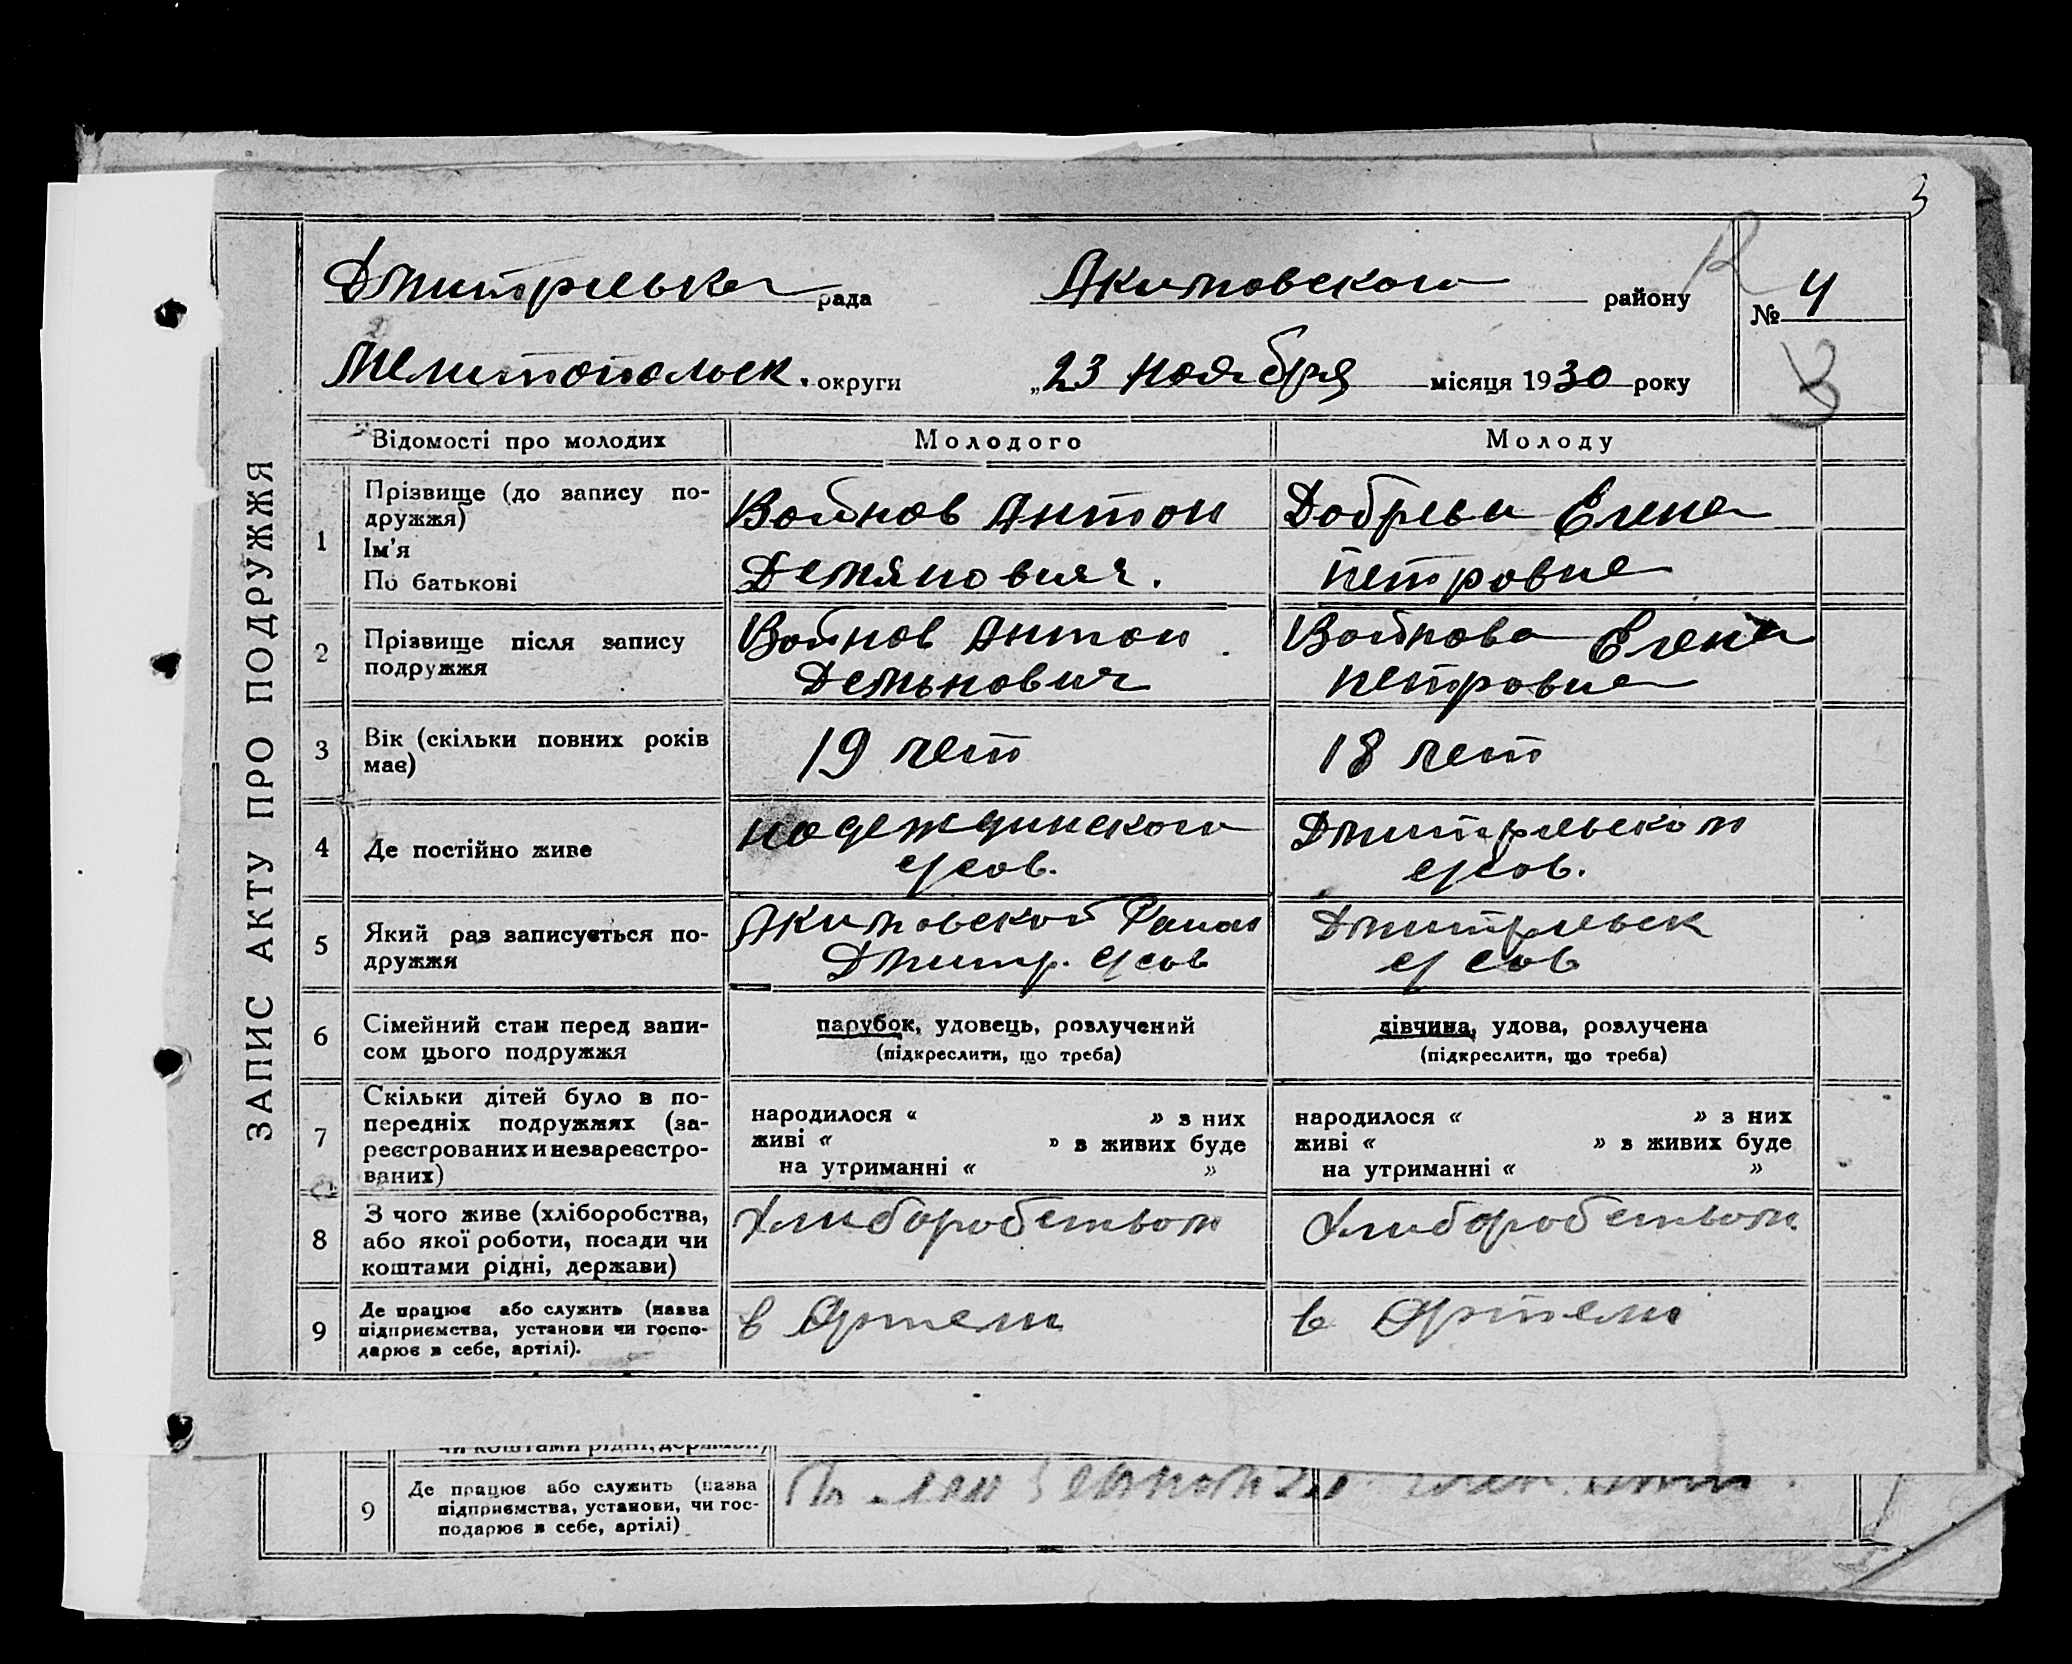 3
Дмитриевка рада Акимовского району № 4
Мелитопольск. округи „23 ноября місяця 1930 року
ЗАПИС АКТУ ПРО ПОДРУЖЖЯ
Відомості про молодих Молодого Молоду
1 Прізвище (до запису по-
дружжя)
Ім'я
По батькові
Войнов Антон
Демянович.
Добрева Елена
Петровне
2 Прізвище після запису
подружжя
Войнов Антон
Демьнович
Войнова Елена
Петровне
3 Вік (скільки повних років
має)
19 лет
18 лет
4 Де постійно живе
Надеждинского
с/сов.
Дмитриевском
с/сов.
5 Який раз записується по-
дружжя
Акимовской
Дмитр. с/сов
Дмитриевск
с/сов
6 Сімейний стан перед запи-
сом цього подружжя
парубок, удовець, розлучений
(підкреслити, що треба)
дівчина, удова, розлучена
(підкреслити, що треба)
7 Скільки дітей було в по-
передніх подружжях (за-
реєстрованих и незареєстро-
ваних)
народилося « » з них
живі « » з живих буде
на утриманні « »
народилося « » з них
живі « » з живих буде
на утриманні « »
8 З чого живе (хліборобства,
або якої роботи, посади чи
коштами рідні, держави)
Хлиборобством
Хлиборобством
9 Де працює або служить (назва
підприємства, установи чи госпо-
дарює в себе, артілі).
в Артели
в Артели
чи коштами рідні, держави)
9 Де працює або служить (назва
підприємства, установи, чи гос-
подарює в себе, артілі)